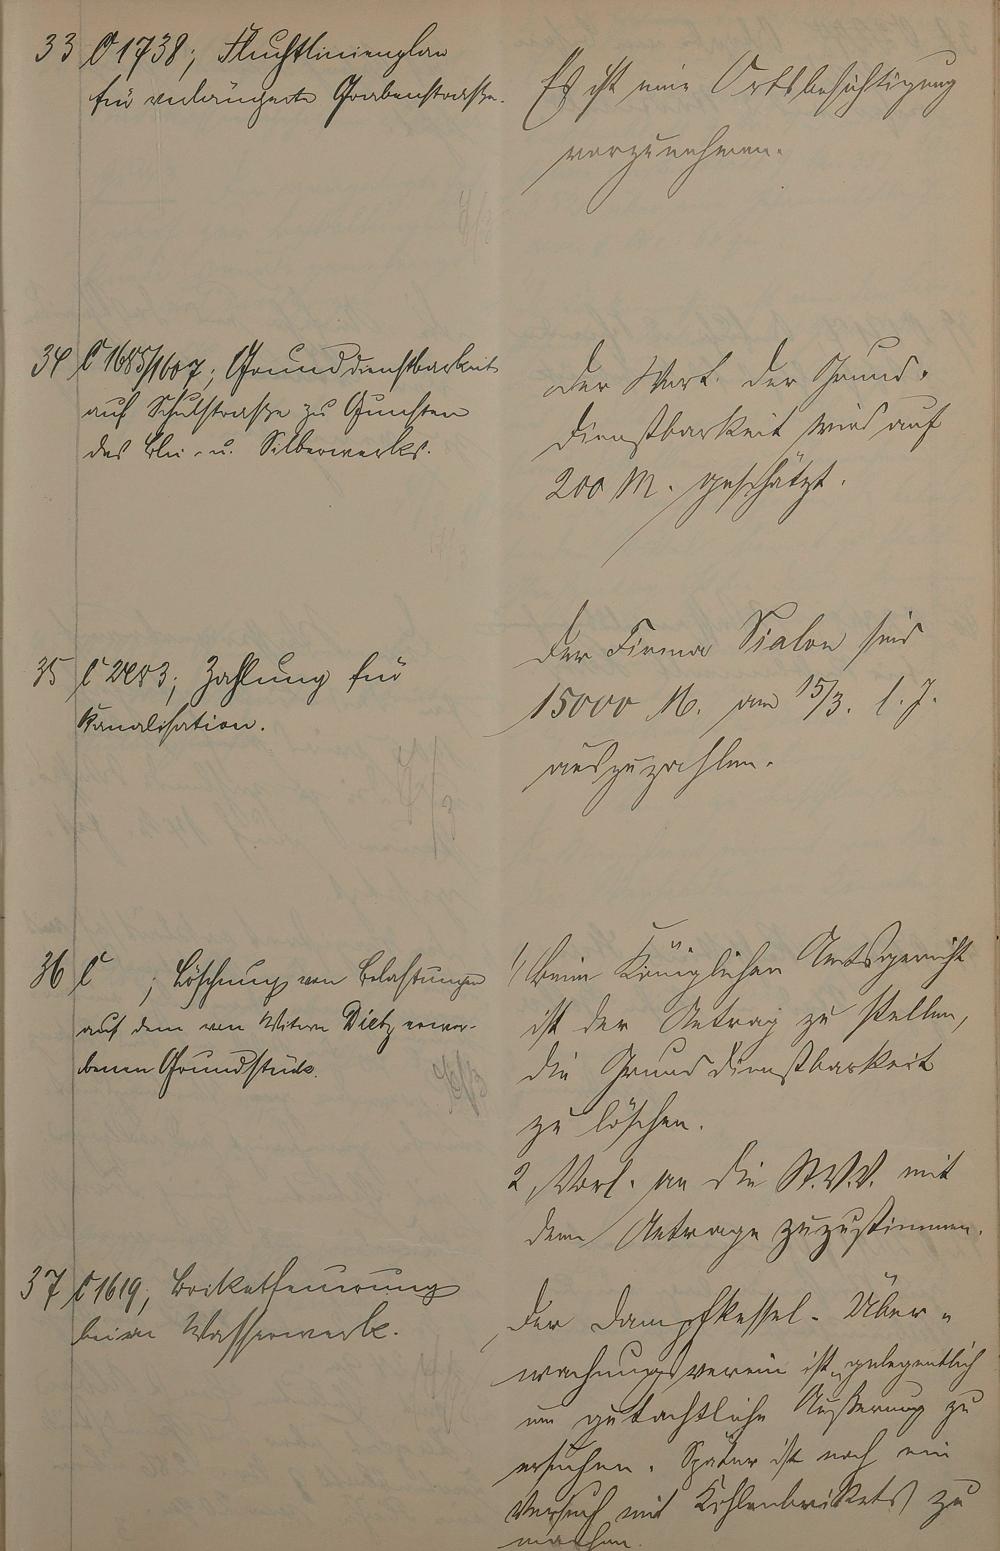 33 C 1738; Fluchtlinienplan
für verlängerte Grabenstraße.
Es ist eine Ortsbesichtigung
vorzunehmen.
34 C 1685/1607; Grunddienstbarkeit
auf Schulstraße zu Gunsten
des Blei- u. Silberwerks.
Der Wert der Grund-
dienstbarkeit wird auf
200 M. geschätzt.
35 C 2483; Zahlung für
Kanalisation.
Der Firma sind
15000 M. am 15/3. l. J.
auszuzahlen.
36 C ; Löschung von Belastungen
auf dem von Dietz erwor-
benen Grundstück.
1/ Beim Königlichen Amtsgericht
ist der Antrag zu stellen,
die Grunddienstbarkeit
zu löschen.
2, Vorl. an die St.V.V. mit
dem Antrage zuzustimmen.
37 C 1619; Briketfeuerung
beim Wasserwerk.
Der Dampfkessel-Über-
wachungsverein ist gelegentlich
um gutachtliche Äußerung zu
ersuchen. Später ist noch ein
Versuch mit Kohlenbrikets zu
machen.